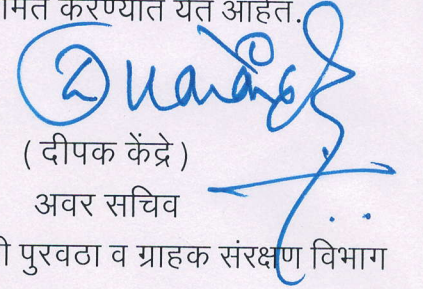 करण्यात येत आहेत.
( दीपक केंद्रे )
अवर सचिव
पुरवठा व ग्राहक संरक्षण विभाग